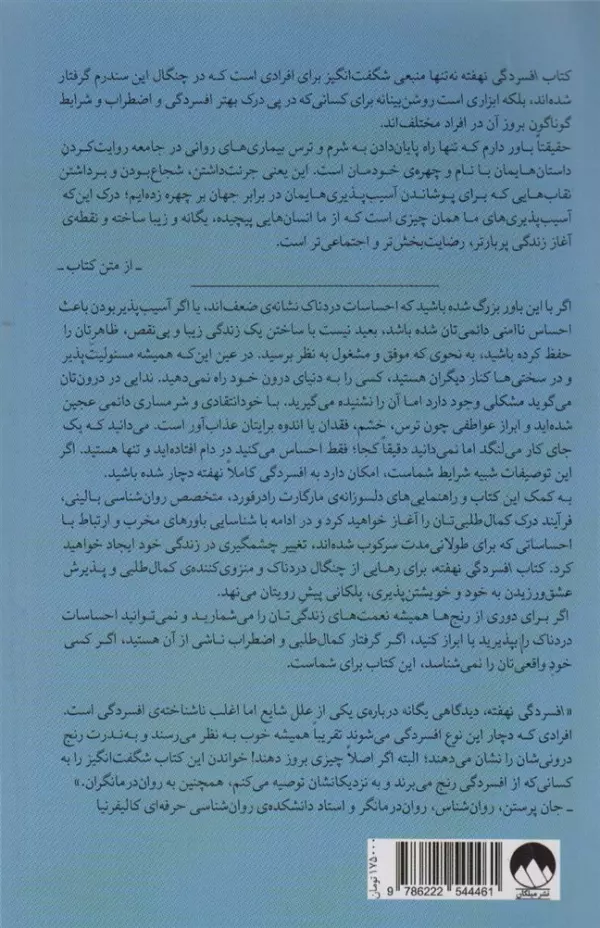 کتاب افسردگی نهفته نه‌تنها منبعی شگفت‌انگیز برای افرادی است کـه در چنگال این سندرم گرفتار
شده‌اند، بلکه ابزاری است روشن‌بینانه برای کسانی‌که در پی درک بهتر افسردگی و اضطراب و شرایط
گوناگون بروز آن در افراد مختلف‌اند.
حقیقتاً باور دارم کـه تنها راه پایان‌دادن به شرم و ترس بیماری‌های روانی در جامعه روایت‌کردن
داستان‌هایمان با نام و چهره‌ی خودمان است. این یعنی جرئت‌داشتن، شجاع‌بودن و برداشتن
نقاب‌هایی کـه بـرای پـوشاندن آسیب‌پذیری‌هایمان در برابر جهان بر چهره زده‌ایم؛ درک این‌که
آسیب‌پذیری‌های مـا همان چیزی است کـه از ما انسان‌هایی پیچیده، یگانه و زیبا ساخته و نقطه‌ی
آغاز زندگی پربارتر، رضایت‌بخش‌تر و اجتماعی‌تر است.
ـ از متن کتاب ـ
اگر با این باور بزرگ شده باشید که احساسات دردناک نشانه‌ی ضعف‌اند، یا اگر آسیب‌پذیربودن باعث
احساس ناامنی دائمی‌تان شده باشد، بعید نیست با ساختن یک زندگی زیبا و بی‌نقص، ظاهرتان را
حفظ کرده باشید، به نحوی که موفق و مشغول به نظر برسید. در عین این‌کـه همیشه مسئولیت‌پذیر
و در سختی‌ها کنار دیگران هستید، کسی را بـه دنیای درون خـود راه نمی‌دهید. ندایی در درون‌تان
می‌گوید مشکلی وجود دارد اما آن را نشنیده می‌گیرید. بـا خودانتقادی و شرمساری دائمی عجین
شده‌اید و ابراز عواطفی چون ترس، خشم، فقدان یا اندوه برایتان عذاب‌آور است. می‌دانید کـه یک
جای کار می‌لنگد اما نمی‌دانید دقیقاً کجا؛ فقط احساس می‌کنید در دام افتاده‌اید و تنها هستید. اگر
این توصیفات شبیه شرایط شماست، امکان دارد به افسردگی کاملاً نهفته دچار شده باشید.
به کمک این کتاب و راهنمایی‌های دلسوزانه‌ی مارگارت رادرفورد، متخصص روان‌شناسی بالینی،
فرآیند درک کمال‌طلبی‌تـان را آغـاز خواهید کرد و در ادامه با شناسایی باورهای مخرب و ارتباط بـا
احساساتی که برای طولانی‌مدت سرکوب شده‌اند، تغییر چشمگیری در زندگی خود ایجاد خواهید
کرد. کتاب افسردگی نهفته، برای رهایی از چنگال دردناک و منزوی‌کننده‌ی کمال‌طلبی و پـذیرش
عشق‌ورزیدن به خود و خویشتن‌پذیری، پلکانی پیش رویتان می‌نهد.
اگر بـرای دوری از رنج‌ها همیشه نعمت‌های زندگی‌تـان را می‌شمارید و نمی‌تـوانید احساسات
دردناک را بپذیرید یا ابراز کنید، اگـر گرفتار کمال‌طلبی و اضطراب ناشی از آن هستید، اگـر کسی
خودِ واقعی‌تان را نمی‌شناسد، این کتاب برای شماست.
«افسردگی نهفته، دیدگاهی یگانه درباره‌ی یکی از علل شایع اما اغلب ناشناخته‌ی افسردگی است.
افرادی کـه دچار این نوع افسردگی می‌شوند تقریباً همیشه خوب به نظر می‌رسند و به‌ندرت رنج
درونی‌شان را نشان می‌دهند؛ البته اگر اصلاً چیزی بروز دهند! خواندن این کتاب شگفت‌انگیز را به
کسانی‌که از افسردگی رنج می‌برند و به نزدیکانشان توصیه می‌کنم، همچنین به روان‌درمانگران.»
ـ جان پرستن، روان‌شناس، روان‌درمانگر و استاد دانشکده‌ی روان‌شناسی حرفه‌ای کالیفرنیا
۱۷۵۰۰۰ تومان
9 786222 544461
نشر میلکان